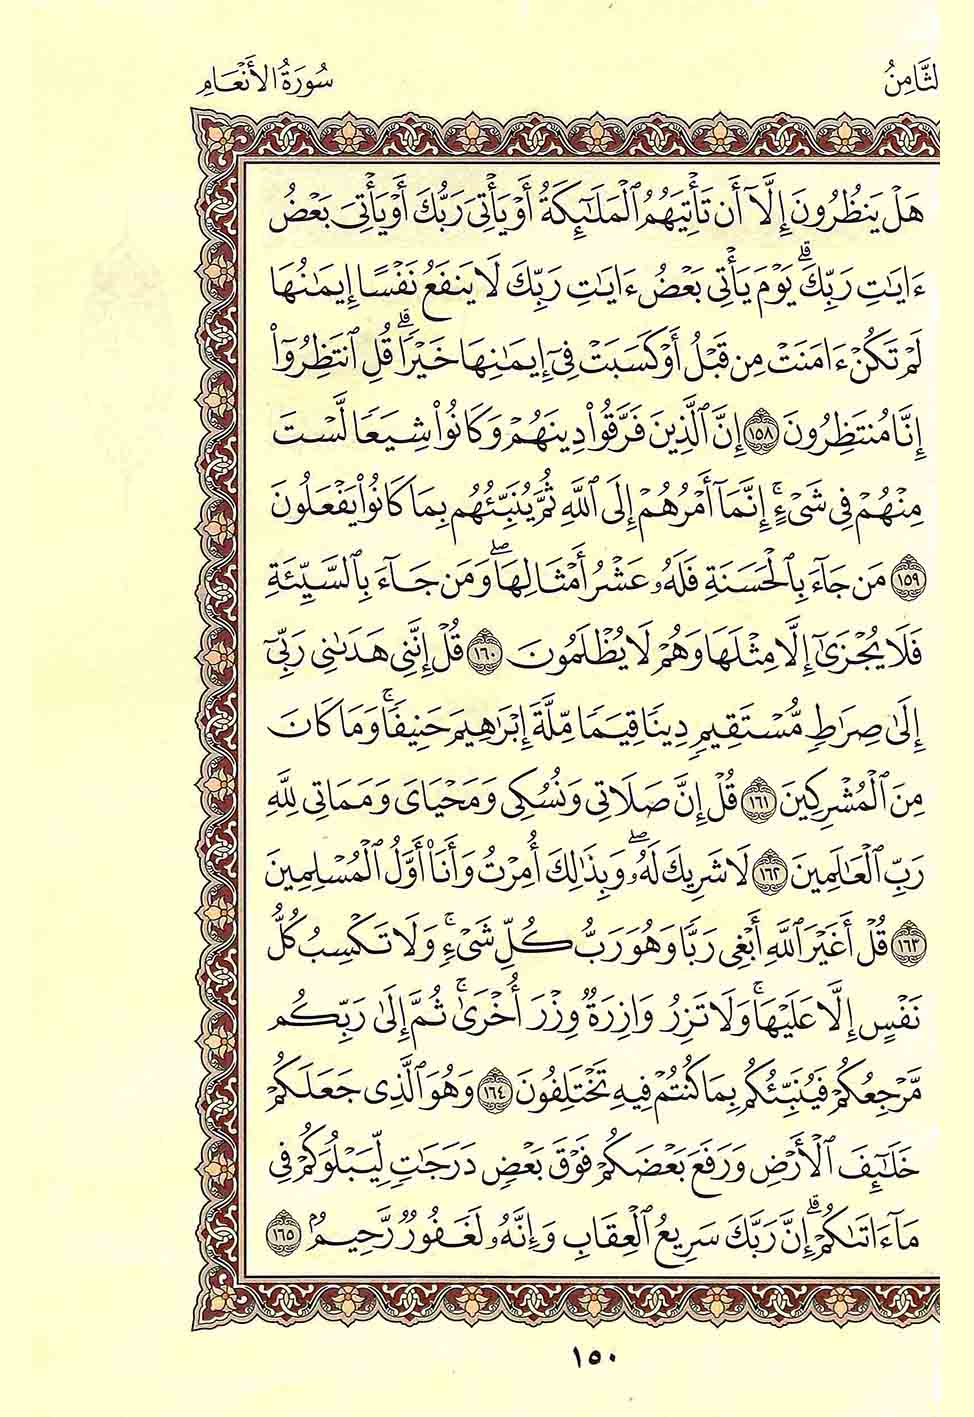 الثَّامِنُ
سُورَةُ الأَنْعَامِ
هَلْ يَنظُرُونَ إِلَّآ أَن تَأْتِيَهُمُ ٱلْمَلَٰٓئِكَةُ أَوْ يَأْتِىَ رَبُّكَ أَوْ يَأْتِىَ بَعْضُ
ءَايَٰتِ رَبِّكَ ۗ يَوْمَ يَأْتِى بَعْضُ ءَايَٰتِ رَبِّكَ لَا يَنفَعُ نَفْسًا إِيمَٰنُهَا
لَمْ تَكُنْ ءَامَنَتْ مِن قَبْلُ أَوْ كَسَبَتْ فِىٓ إِيمَٰنِهَا خَيْرًا ۗ قُلِ ٱنتَظِرُوٓا۟
إِنَّا مُنتَظِرُونَ ١٥٨ إِنَّ ٱلَّذِينَ فَرَّقُوا۟ دِينَهُمْ وَكَانُوا۟ شِيَعًا لَّسْتَ
مِنْهُمْ فِى شَىْءٍ ۚ إِنَّمَآ أَمْرُهُمْ إِلَى ٱللَّهِ ثُمَّ يُنَبِّئُهُم بِمَا كَانُوا۟ يَفْعَلُونَ
١٥٩ مَن جَآءَ بِٱلْحَسَنَةِ فَلَهُۥ عَشْرُ أَمْثَالِهَا ۖ وَمَن جَآءَ بِٱلسَّيِّئَةِ
فَلَا يُجْزَىٰٓ إِلَّا مِثْلَهَا وَهُمْ لَا يُظْلَمُونَ ١٦٠ قُلْ إِنَّنِى هَدَىٰنِى رَبِّىٓ
إِلَىٰ صِرَٰطٍ مُّسْتَقِيمٍ دِينًا قِيَمًا مِّلَّةَ إِبْرَٰهِيمَ حَنِيفًا ۚ وَمَا كَانَ
مِنَ ٱلْمُشْرِكِينَ ١٦١ قُلْ إِنَّ صَلَاتِى وَنُسُكِى وَمَحْيَاىَ وَمَمَاتِى لِلَّهِ
رَبِّ ٱلْعَٰلَمِينَ ١٦٢ لَا شَرِيكَ لَهُۥ ۖ وَبِذَٰلِكَ أُمِرْتُ وَأَنَا۠ أَوَّلُ ٱلْمُسْلِمِينَ
١٦٣ قُلْ أَغَيْرَ ٱللَّهِ أَبْغِى رَبًّا وَهُوَ رَبُّ كُلِّ شَىْءٍ ۚ وَلَا تَكْسِبُ كُلُّ
نَفْسٍ إِلَّا عَلَيْهَا ۚ وَلَا تَزِرُ وَازِرَةٌ وِزْرَ أُخْرَىٰ ۚ ثُمَّ إِلَىٰ رَبِّكُم
مَّرْجِعُكُمْ فَيُنَبِّئُكُم بِمَا كُنتُمْ فِيهِ تَخْتَلِفُونَ ١٦٤ وَهُوَ ٱلَّذِى جَعَلَكُمْ
خَلَٰٓئِفَ ٱلْأَرْضِ وَرَفَعَ بَعْضَكُمْ فَوْقَ بَعْضٍ دَرَجَٰتٍ لِّيَبْلُوَكُمْ فِى
مَآ ءَاتَىٰكُمْ ۗ إِنَّ رَبَّكَ سَرِيعُ ٱلْعِقَابِ وَإِنَّهُۥ لَغَفُورٌ رَّحِيمٌۢ ١٦٥
١٥٠